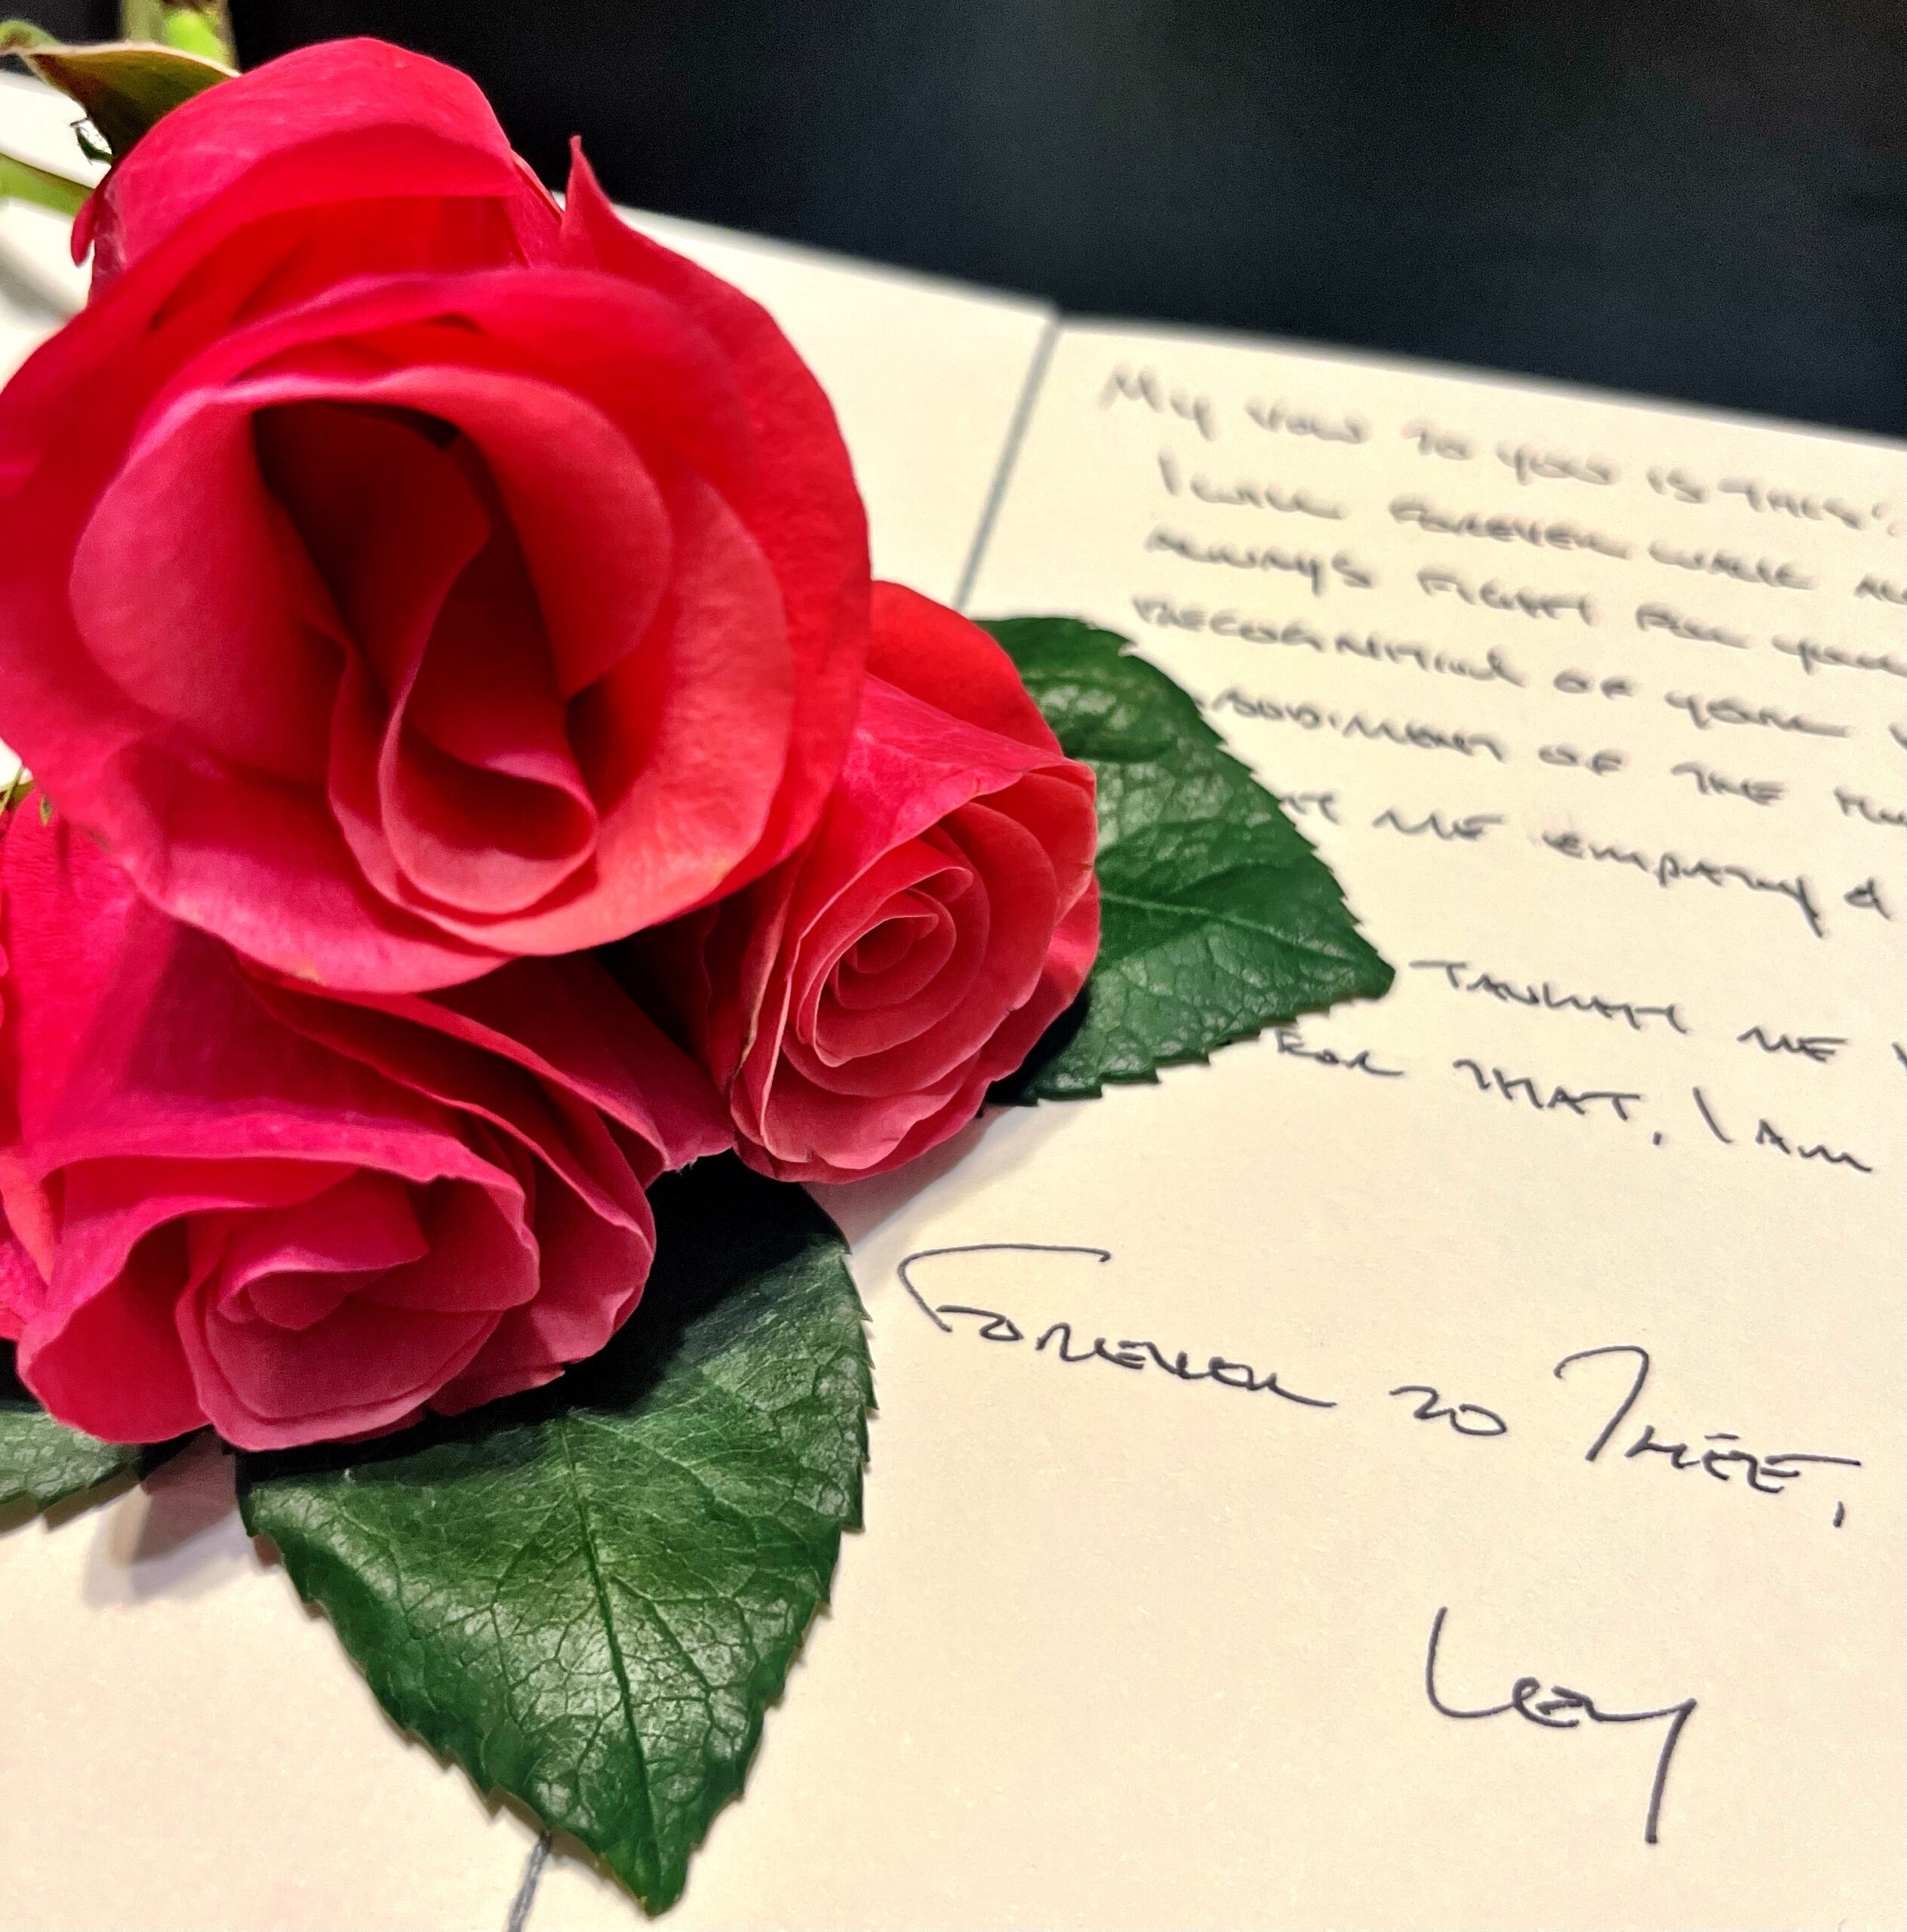 My vow to you is this:
I will forever walk
always fight for your
recognition of your
of the
me empathy &
taught me
For that, I am
Forever to Thee,